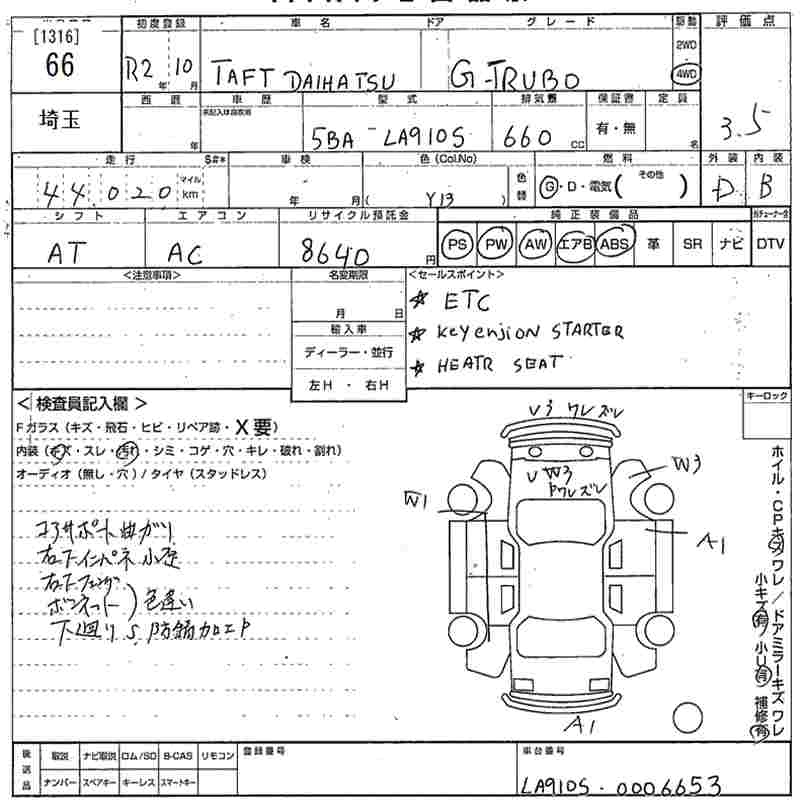 [1316]
66
埼玉
初度登録 車名 ドア グレード 駆動 評価点
R2年 10月 TAFT DAIHATSU G-TRUBO 2WD 4WD 3.5
西暦 車歴 型式 排気量 保証書 定員
年 未記入は自家用 5BA-LA910S 660 CC 有・無 名
走行 S#* 車検 色(Col.No) 色替 燃料 外装 内装
44,020 マイル km 年 月 ( Y13 ) G・D・電気( その他 ) D B
シフト エアコン リサイクル預託金 純正装備品
AT AC 8640円 PS PW AW エアB ABS 革 SR ナビ DTV
<注意事項> 名変期限 <セールスポイント>
月 日 ☆ ETC
輸入車 ☆ Keyenjion STARTER
ディーラー・並行 ☆ HEATR SEAT
左H ・ 右H
<検査員記入欄> キーロック
Fガラス (キズ・飛石・ヒビ・リペア跡・X要)
内装 (キズ・スレ・汚れ・シミ・コゲ・穴・キレ・破れ・割れ)
オーディオ (無し・穴) / タイヤ (スタッドレス)
コアサポート曲ガリ
右下インパネ小歪
右下フェンダ
ボンネット ) 色違い
下廻りS防錆加工P
U3 ワレズレ
UW3
Pワレズレ
W3
W1
A1
A1
ホイル・CPキズワレ / ドアミラーキズワレ
小キズ有 小U有 補修有
後送品 取説 ナビ取説 ロム/SD B-CAS リモコン 登録番号 車台番号
ナンバー スペアキー キーレス スマートキー LA910S-0006653